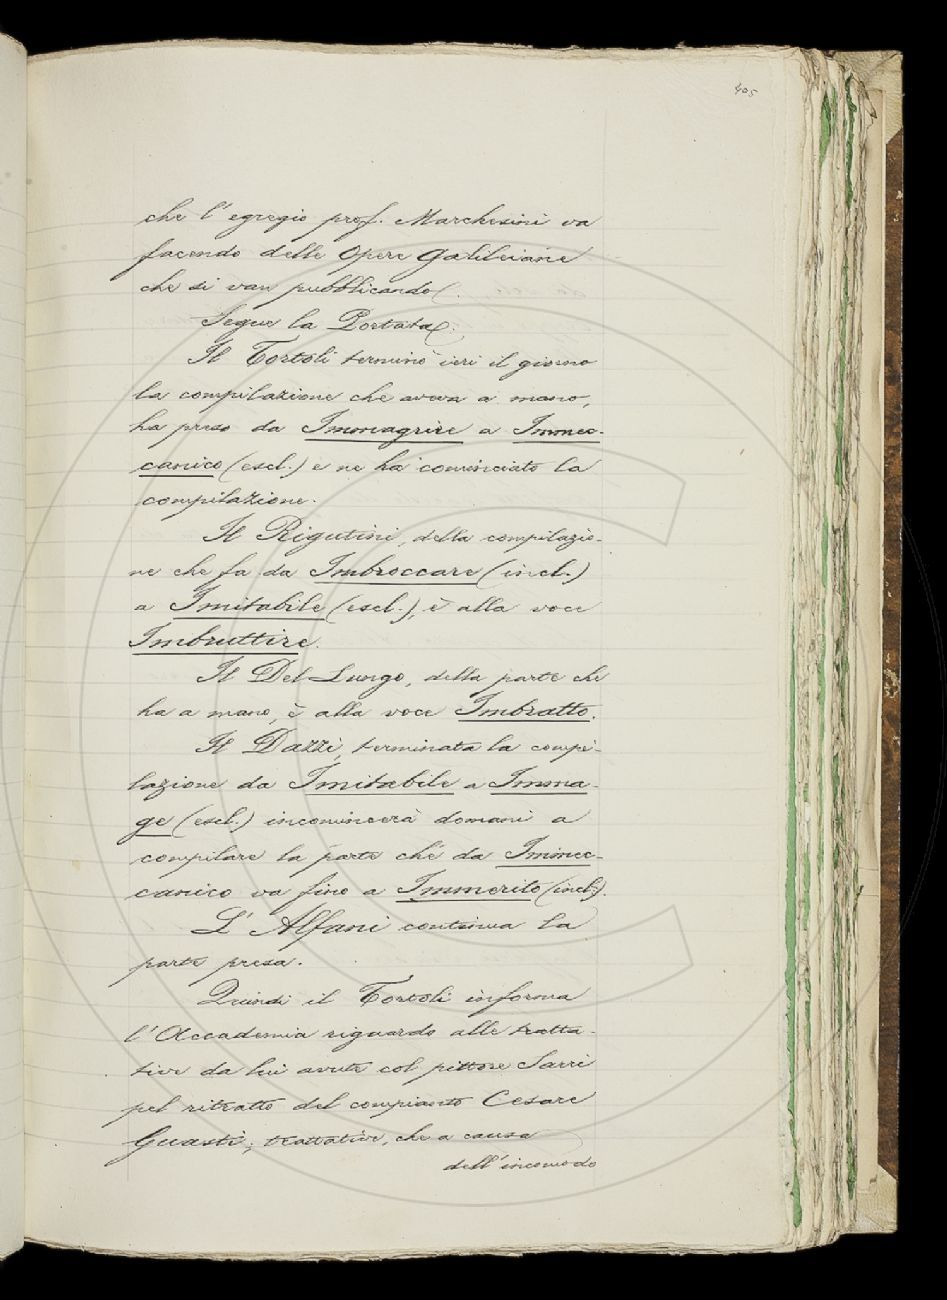 405
che l'egregio prof. Marchesini va
facendo delle Opere Galileiane
che si van pubblicando.
Segue la Portata.
Il Tortoli terminò ieri il giorno
la compilazione che aveva a mano,
ha preso da Immagrire a Immec-
canico (escl.) e ne ha cominciato la
compilazione.
Il Rigutini, della compilazio-
ne che fa da Imbroccare (incl.)
a Imitabile (escl.), è alla voce
Imbruttire.
Il Del Lungo, della parte che
ha a mano, è alla voce Imbratto.
Il Dazzi, terminata la compi-
lazione da Imitabile a Imma-
ge (escl.) incomincerà domani a
compilare la parte ché da Immec-
canico va fino a Immerito (incl.).
L'Alfani continua la
parte presa.
Quindi il Tortoli informa
l'Accademia riguardo alle tratta-
tive da lui avute col pittore Sarri
pel ritratto del compianto Cesare
Guasti; trattative, che a causa
dell'incomodo